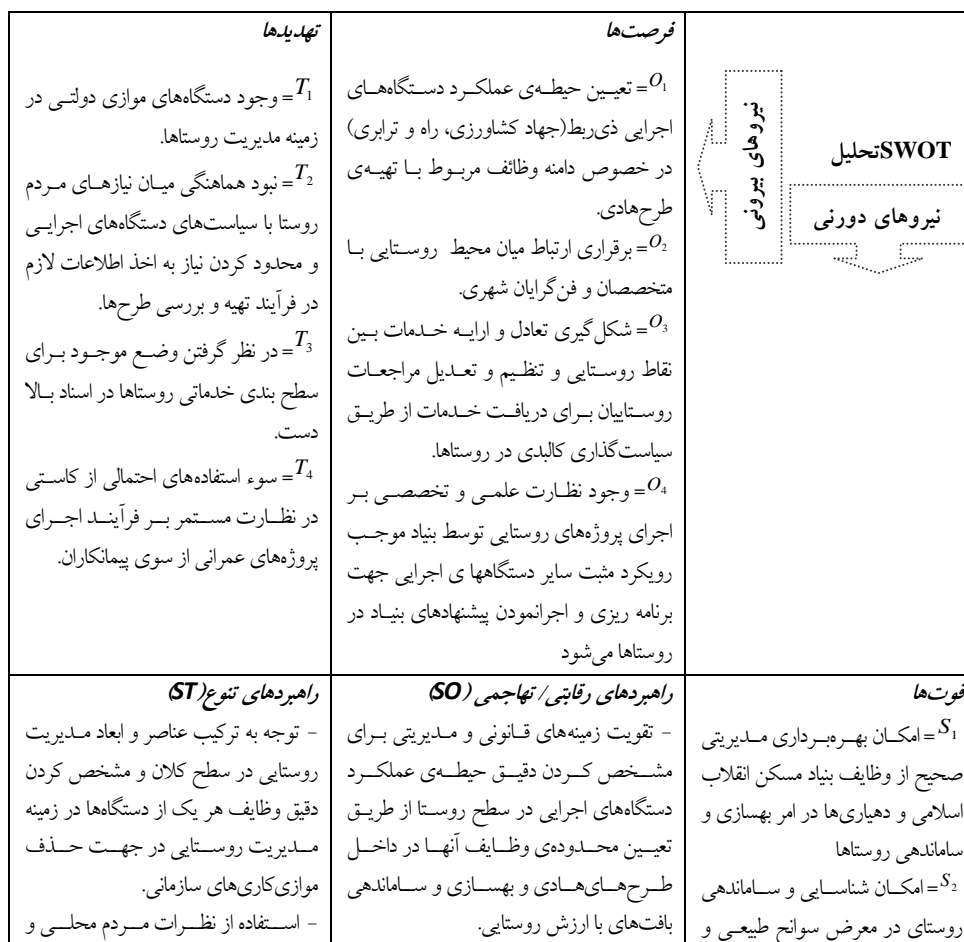 تحلیلSWOT
نیروهای دورنی
نیروهای بیرونی
فرصت‌ها
O1= تعیین حیطه‌ی عملکرد دستگاه‌های
اجرایی ذی‌ربط(جهاد کشاورزی، راه و ترابری)
در خصوص دامنه وظائف مربوط با تهیه‌ی
طرح‌هادی.
O2= برقراری ارتباط میان محیط روستایی با
متخصصان و فن‌گرایان شهری.
O3= شکل‌گیری تعادل و ارایه خدمات بین
نقاط روستایی و تنظیم و تعدیل مراجعات
روستاییان برای دریافت خدمات از طریق
سیاست‌گذاری کالبدی در روستاها.
O4= وجود نظارت علمی و تخصصی بر
اجرای پروژه‌های روستایی توسط بنیاد موجب
رویکرد مثبت سایر دستگاهها ی اجرایی جهت
برنامه ریزی و اجرانمودن پیشنهادهای بنیاد در
روستاها می‌شود
تهدیدها
T1= وجود دستگاه‌های موازی دولتی در
زمینه مدیریت روستاها.
T2= نبود هماهنگی میان نیازهای مردم
روستا با سیاست‌های دستگاه‌های اجرایی
و محدود کردن نیاز به اخذ اطلاعات لازم
در فرآیند تهیه و بررسی طرح‌ها.
T3= در نظر گرفتن وضع موجود برای
سطح بندی خدماتی روستاها در اسناد بالا
دست.
T4= سوء استفاده‌های احتمالی از کاستی
در نظارت مستمر بر فرآیند اجرای
پروژه‌های عمرانی از سوی پیمانکاران.
قوت‌ها
S1= امکان بهره‌برداری مدیریتی
صحیح از وظایف بنیاد مسکن انقلاب
اسلامی و دهیاری‌ها در امر بهسازی و
ساماندهی روستاها
S2= امکان شناسایی و ساماندهی
روستای در معرض سوانح طبیعی و
راهبردهای رقابتی/ تهاجمی (SO)
- تقویت زمینه‌های قانونی و مدیریتی برای
مشخص کردن دقیق حیطه‌ی عملکرد
دستگاه‌های اجرایی در سطح روستا از طریق
تعیین محدوده‌ی وظایف آنها در داخل
طرح‌های‌هادی و بهسازی و ساماندهی
بافت‌های با ارزش روستایی.
راهبردهای تنوع(ST)
- توجه به ترکیب عناصر و ابعاد مدیریت
روستایی در سطح کلان و مشخص کردن
دقیق وظایف هر یک از دستگاه‌ها در زمینه
مدیریت روستایی در جهت حذف
موازی‌کاری‌های سازمانی.
- استفاده از نظرات مردم محلی و